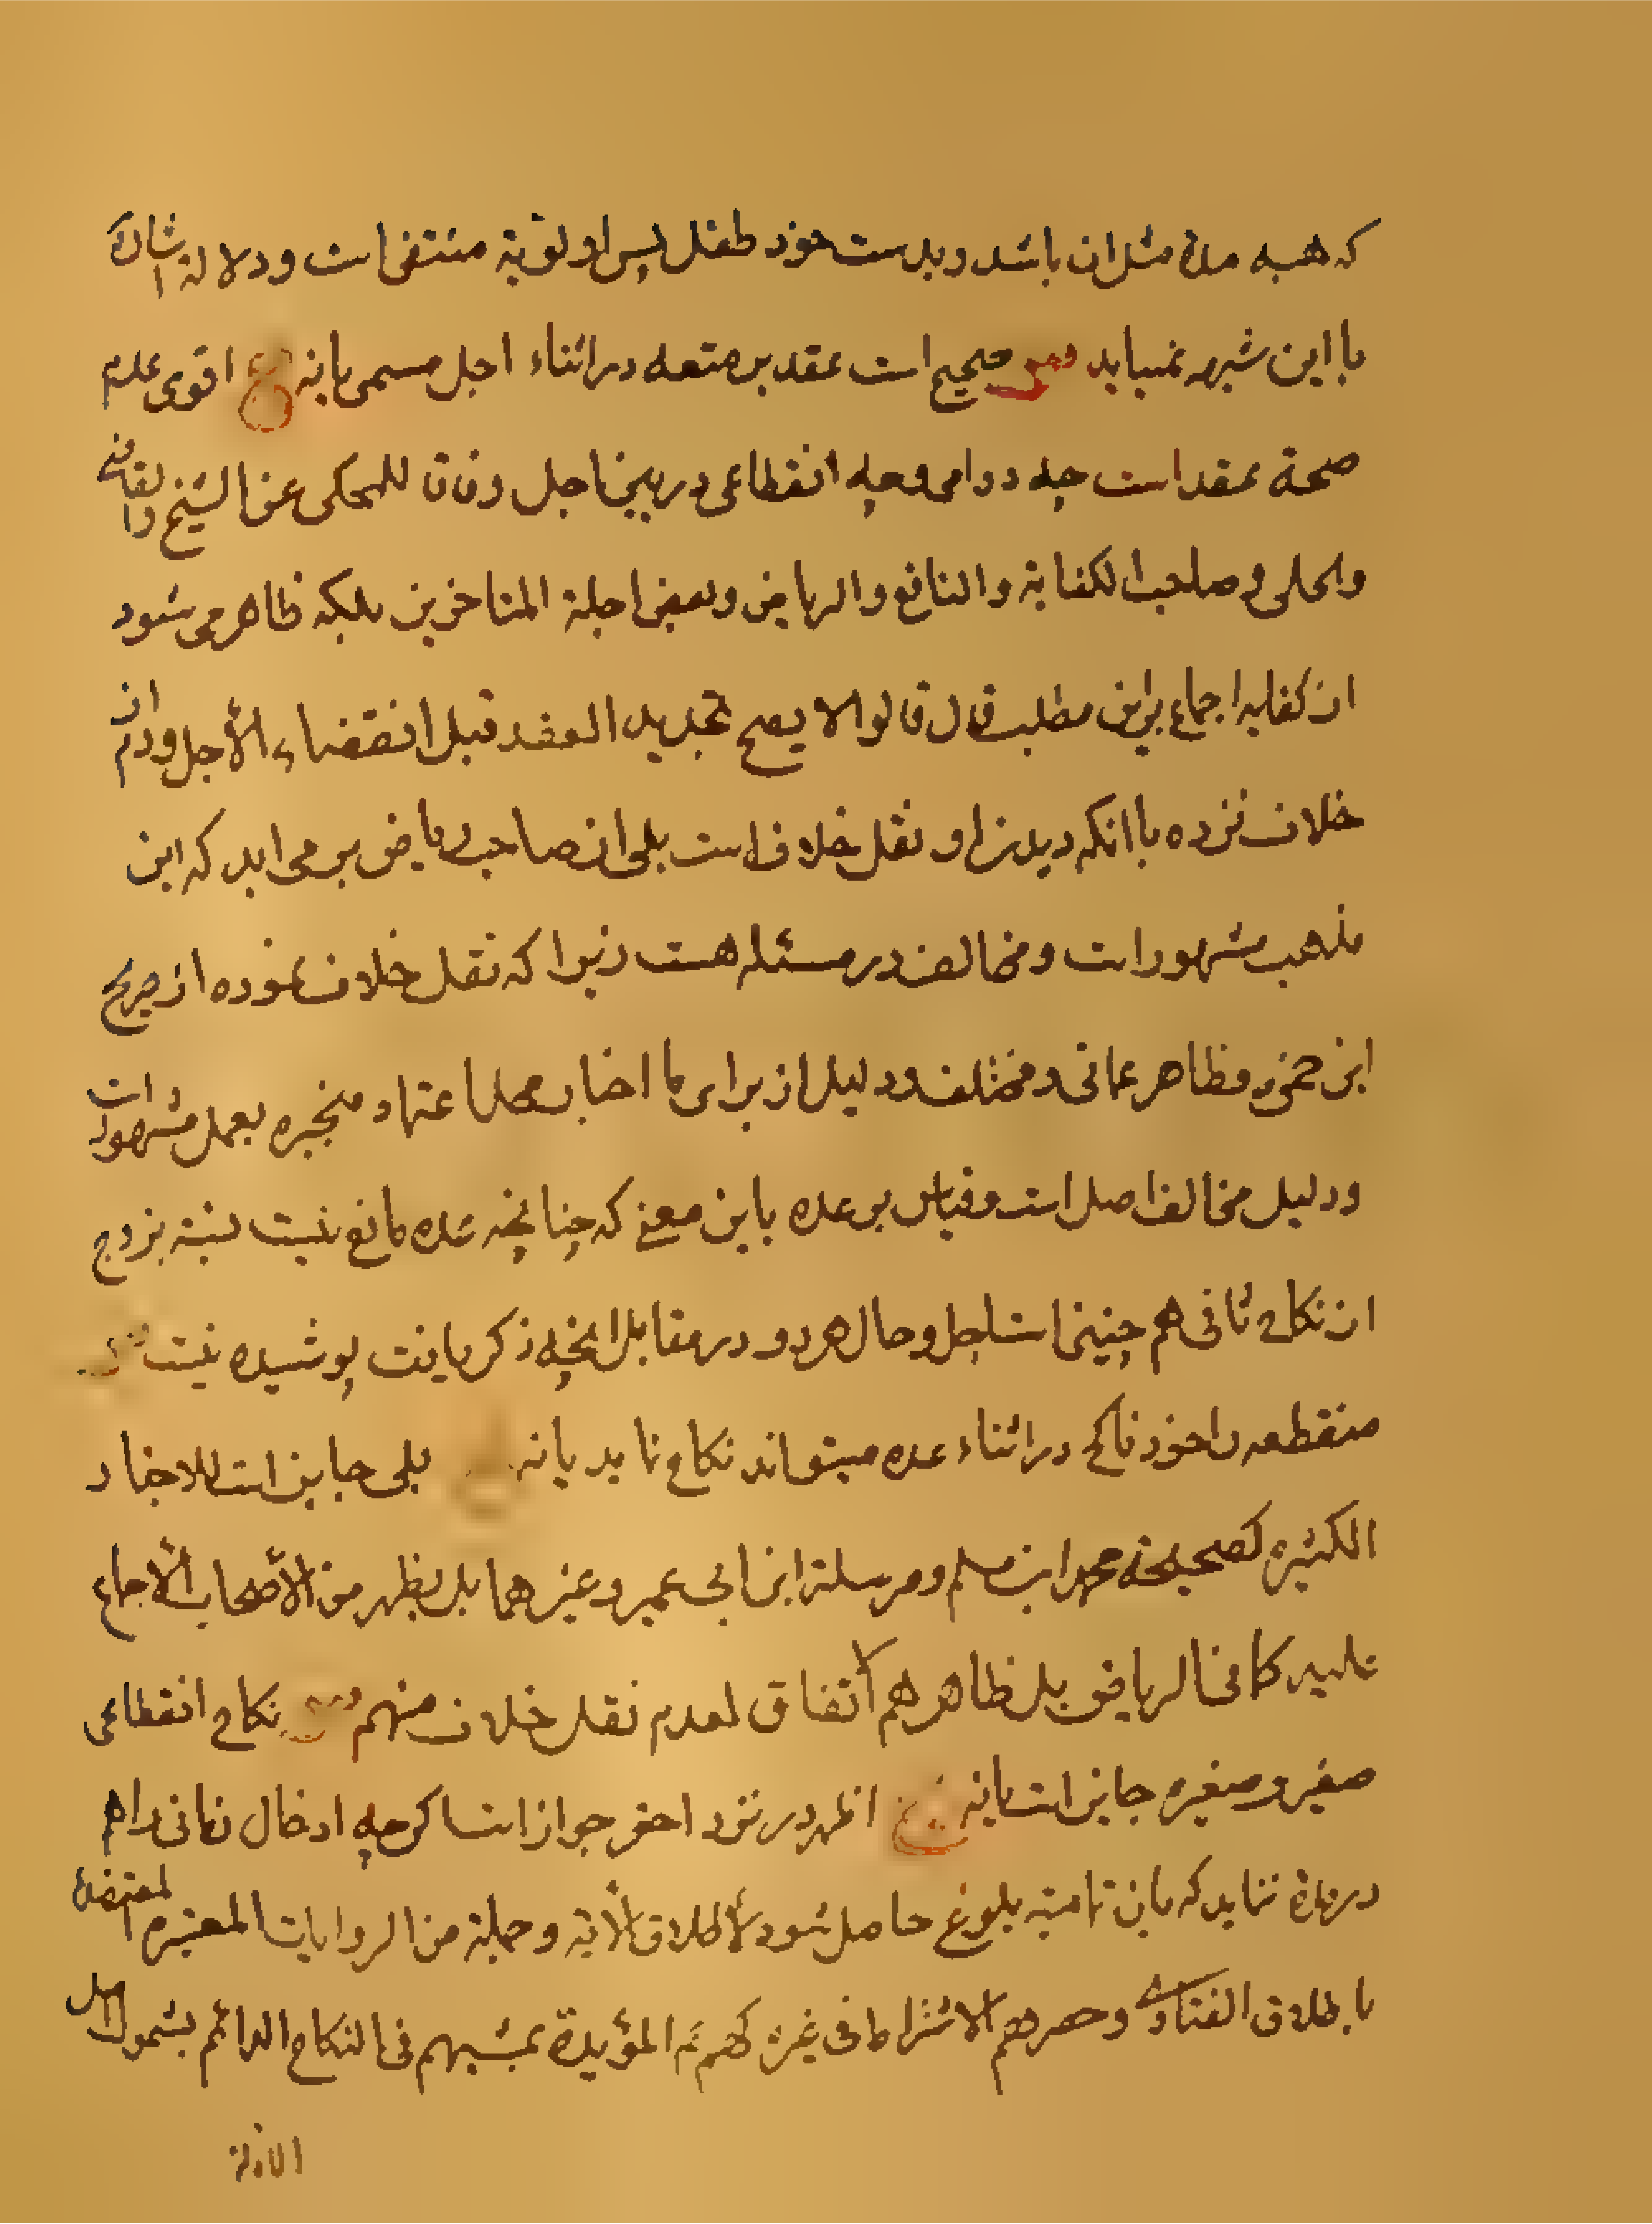 که هبه مدة مثل ان باشد و بدست خود طفل پس اولویة منتفی است و دلالة اشاره
با این شبهه نمیاید صحیح است عقد بر متعه در اثناء اجل مسمی یا نه ج اقوی عدم
صحة عقد است چه دوامی و چه انقطاعی در بین اجل وفاقا للمحکی عن الشیخ والقاضی
والحلی و صاحب الکفایة والنافع والریاض وبعض اجلة المتاخرین بلکه ظاهر می شود
از کفایه اجماع براین مطلب قال قالوا لا یصح تجدید العقد قبل انقضاء الأجل ودر آن
خلاف نزده با انکه دیدن او نقل خلاف است بلی از صاحب ریاض بر می اید که این
مذهب مشهور است و مخالف در مسئله هست زیرا که نقل خلاف نموده از صریح
ابن حمزه و ظاهر عمانی و مختلف و دلیل از برای ما اخبار محل اعتماد منجبره بعمل مشهور است
و دلیل مخالف اصل است و قیاس بر عده باین معنی که چنانچه عده مانع نیست نسبة بزوج
از نکاح ثانی هم چنین است اجل و حال هر دو در مقابل انچه ذکر یافت پوشیده نیست
منقطعه را خود ناکح در اثناء عده میتواند نکاح نماید یا نه بلی جایز است للاخبار
الکثیره کصحیحة محمد ابن مسلم و مرسلة ابن ابی عمیر و غیرهما بل یظهر من الأصحاب الأجماع
علیه کما فی الریاض بل ظاهر هم اتفاق لعدم نقل خلاف منهم نکاح انقطاعی
صغیر و صغیره جایز است یا نه ج اظهر در نزد احقر جواز است اکرچه ادخال زمانی را هم
در مدة ننماید که بان تامیة بلوغ حاصل شود لأطلاق الأیة و جملة من الروایات المعتبره المعتضدة
باطلاق الفتاوی و حصرهم الاشتراط فی غیره کهم ثم المؤیدة بمشیهم فی النکاح الدائم بشمول اصل
الادلة